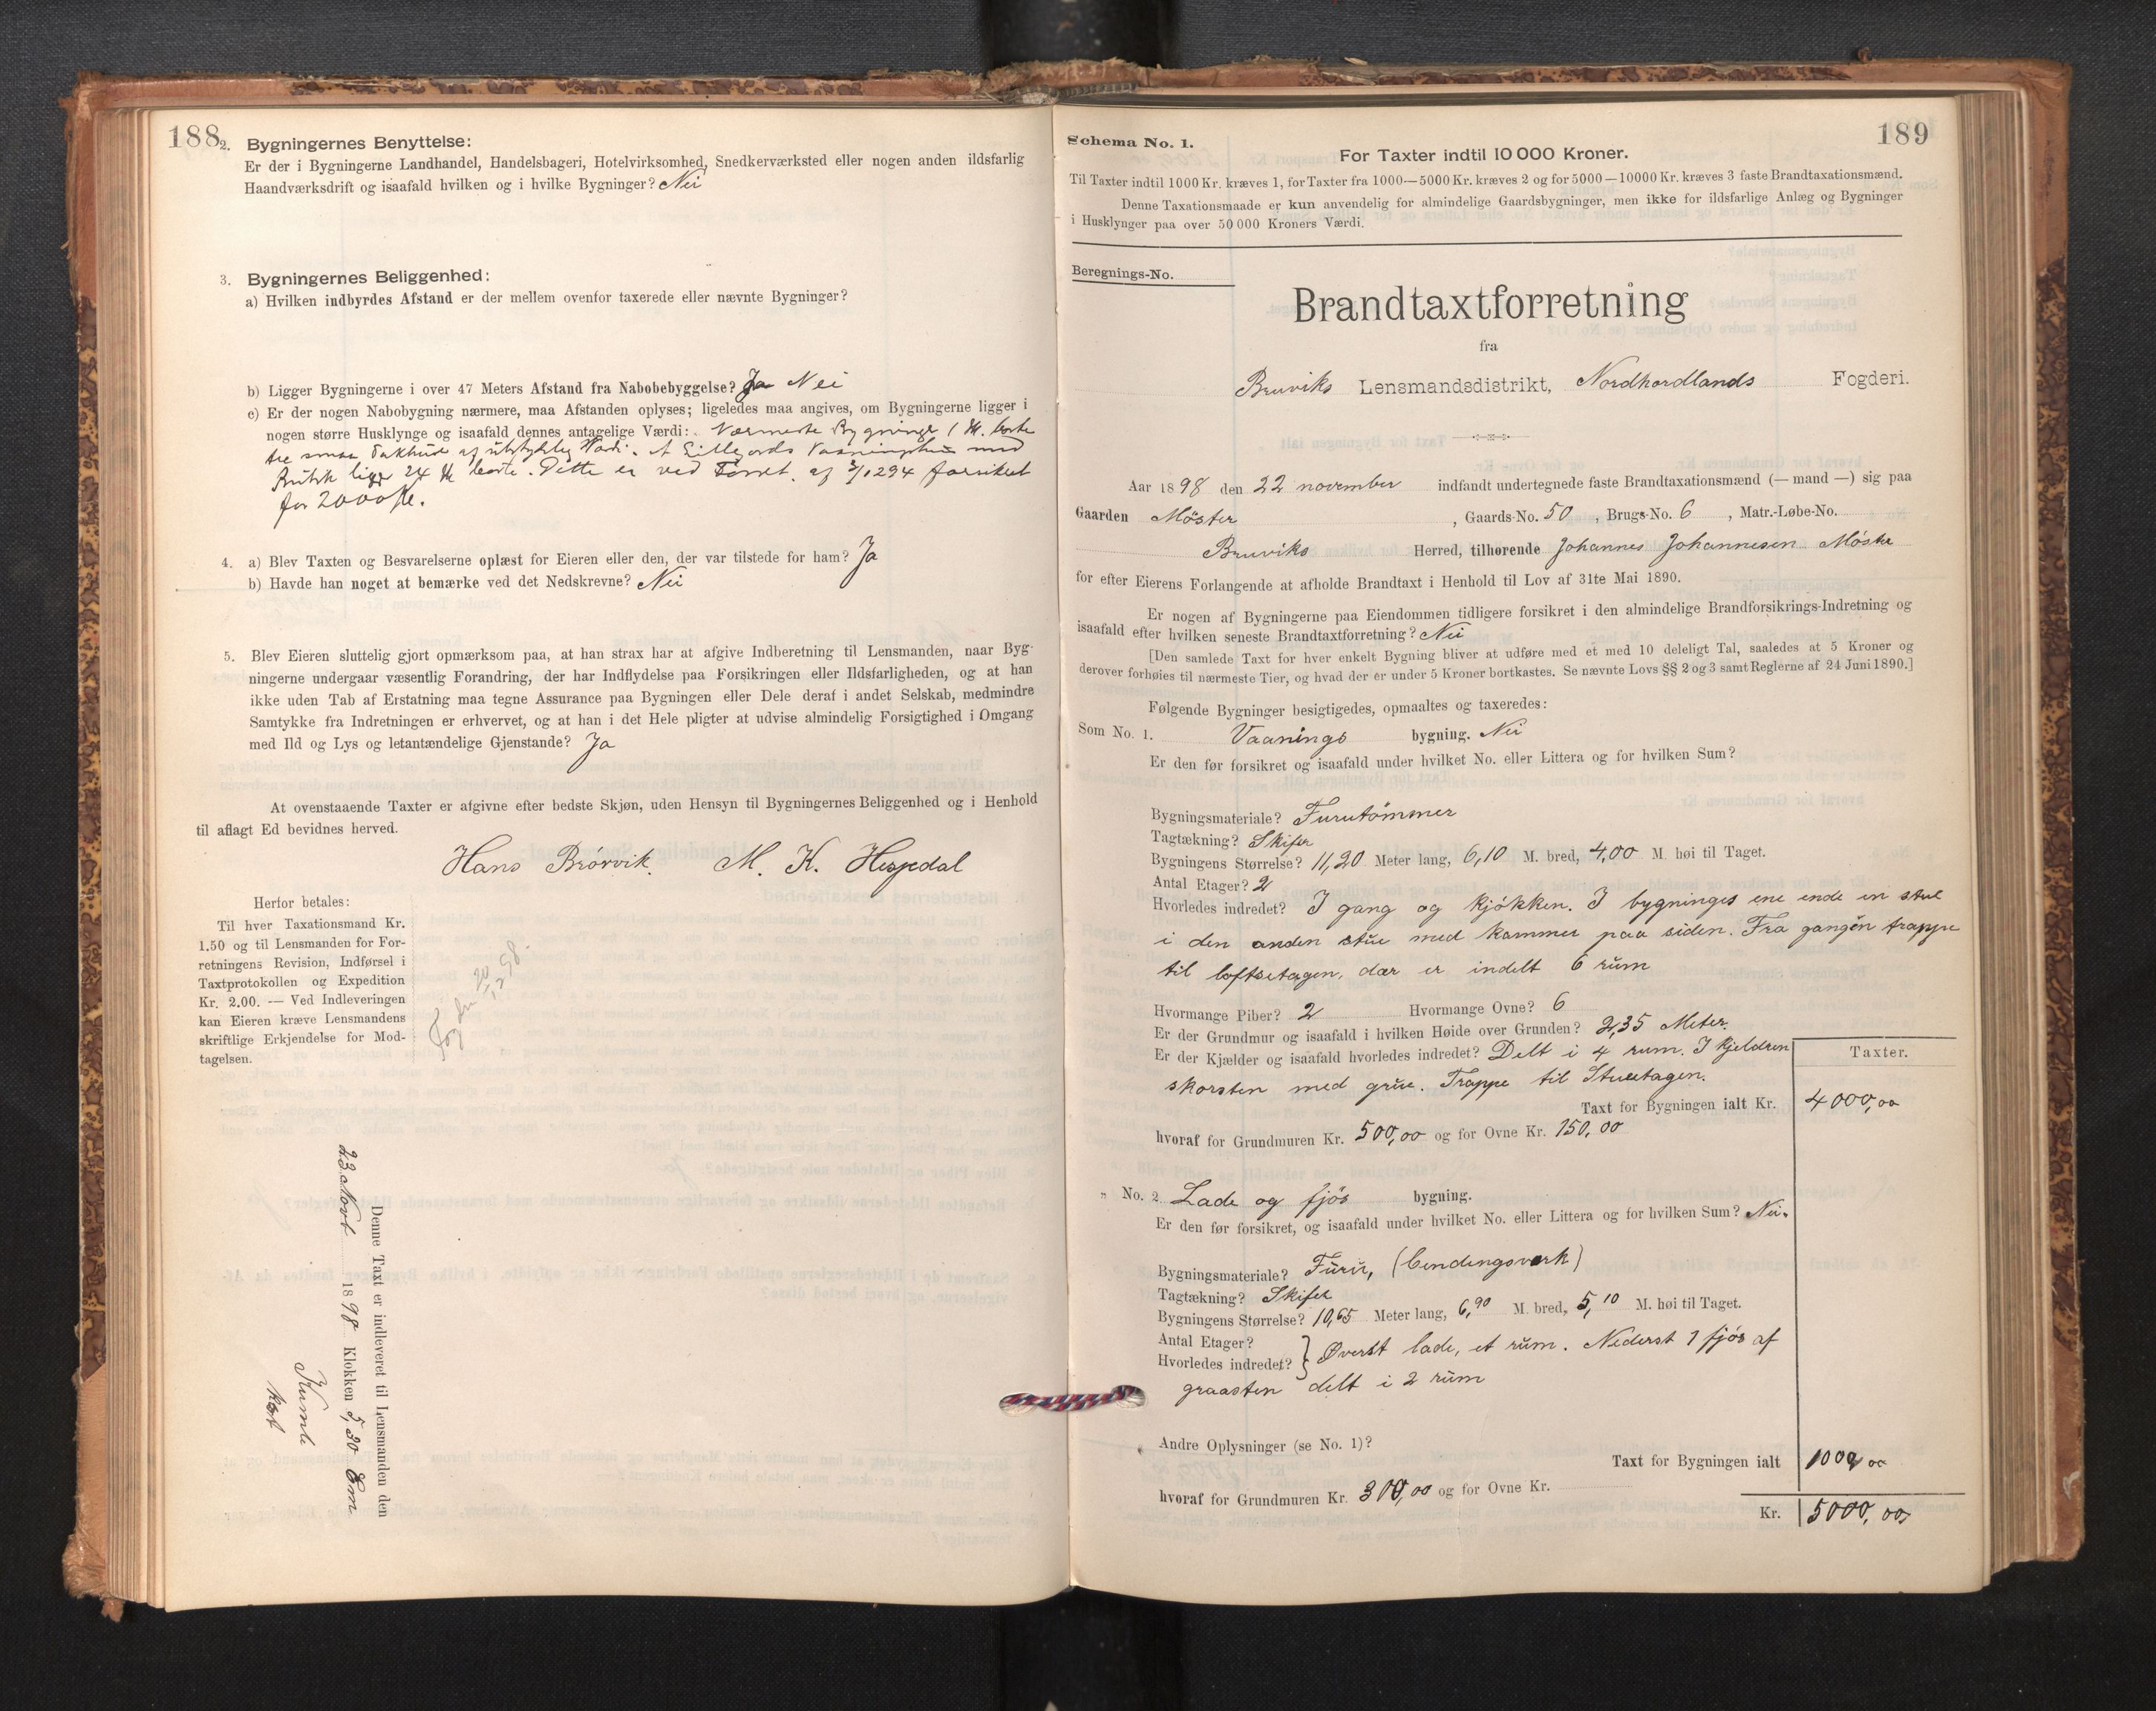 188
2. Bygningernes Benyttelse:
Er der i Bygningerne Landhandel, Handelsbageri, Hotelvirksomhed, Snedkerværksted eller nogen anden ildsfarlig
Haandværksdrift og isaafald hvilken og i hvilke Bygninger? Nei
3. Bygningernes Beliggenhed:
a) Hvilken indbyrdes Afstand er der mellem ovenfor taxerede eller nævnte Bygninger?
b) Ligger Bygningerne i over 47 Meters Afstand fra Nabobebyggelse? Ja Nei
c) Er der nogen Nabobygning nærmere, maa Afstanden oplyses; ligeledes maa angives, om Bygningerne ligger i
nogen større Husklynge og isaafald dennes antagelige Værdi: Nærmeste Bygninger 1 M. borte
tre smaa af Værdi. A Vaaningshus med
ligger 24 M borte. Dette er ved Forret. af 3/1294 forsikret
for 2000 Kr.
4. a) Blev Taxten og Besvarelserne oplæst for Eieren eller den, der var tilstede for ham? Ja
b) Havde han noget at bemærke ved det Nedskrevne? Nei
5. Blev Eieren sluttelig gjort opmærksom paa, at han strax har at afgive Indberetning til Lensmanden, naar Byg-
ningerne undergaar væsentlig Forandring, der har Indflydelse paa Forsikringen eller Ildsfarligheden, og at han
ikke uden Tab af Erstatning maa tegne Assurance paa Bygningen eller Dele deraf i andet Selskab, medmindre
Samtykke fra Indretningen er erhvervet, og at han i det Hele pligter at udvise almindelig Forsigtighed i Omgang
med Ild og Lys og letantændelige Gjenstande? Ja
At ovenstaaende Taxter er afgivne efter bedste Skjøn, uden Hensyn til Bygningernes Beliggenhed og i Henhold
til aflagt Ed bevidnes herved.
Hans Brørvik. M. K. Hesjedal
Herfor betales:
Til hver Taxationsmand Kr.
1.50 og til Lensmanden for For-
retningens Revision, Indførsel i
Taxtprotokollen og Expedition
Kr. 2.00. — Ved Indleveringen
kan Eieren kræve Lensmandens
skriftlige Erkjendelse for Mod-
tagelsen.
20/12 98.
Denne Taxt er indleveret til Lensmanden den
23 Novbr 1898 Klokken 5,30 Em
Kumle
Schema No. 1.
189
For Taxter indtil 10 000 Kroner.
Til Taxter indtil 1000 Kr. kræves 1, for Taxter fra 1000—5000 Kr. kræves 2 og for 5000—10000 Kr. kræves 3 faste Brandtaxationsmænd.
Denne Taxationsmaade er kun anvendelig for almindelige Gaardsbygninger, men ikke for ildsfarlige Anlæg og Bygninger
i Husklynger paa over 50 000 Kroners Værdi.
Beregnings-No.
Brandtaxtforretning
fra
Bruviks Lensmandsdistrikt, Nordhordlands Fogderi.
Aar 1898 den 22 november indfandt undertegnede faste Brandtaxationsmænd (— mand —) sig paa
Gaarden Möster, Gaards-No. 50, Brugs-No. 6, Matr.-Løbe-No.
Bruviks Herred, tilhørende Johannes Johannesen Möster
for efter Eierens Forlangende at afholde Brandtaxt i Henhold til Lov af 31te Mai 1890.
Er nogen af Bygningerne paa Eiendommen tidligere forsikret i den almindelige Brandforsikrings-Indretning og
isaafald efter hvilken seneste Brandtaxtforretning? Nei
[Den samlede Taxt for hver enkelt Bygning bliver at udføre med et med 10 deleligt Tal, saaledes at 5 Kroner og
derover forhøies til nærmeste Tier, og hvad der er under 5 Kroner bortkastes. Se nævnte Lovs §§ 2 og 3 samt Reglerne af 24 Juni 1890.]
Følgende Bygninger besigtigedes, opmaaltes og taxeredes:
Som No. 1. Vaanings bygning. Nei
Er den før forsikret og isaafald under hvilket No. eller Littera og for hvilken Sum?
Bygningsmateriale? Furutömmer
Tagtækning? Skifer
Bygningens Størrelse? 11,20 Meter lang, 6,10 M. bred, 4,00 M. høi til Taget.
Antal Etager? 2
Hvorledes indredet? I gang og kjökken. I bygninges ene ende en stue
i den anden stue med kammer paa siden. Fra gangen trappe
til loftsetagen, dær er indelt 6 rum
Hvormange Piber? 2 Hvormange Ovne? 6
Er der Grundmur og isaafald i hvilken Høide over Grunden? 2,35 Meter.
Er der Kjælder og isaafald hvorledes indredet? Delt i 4 rum. I kjeldren
skorsten med grue. Trappe til Stuetagen.
Taxter.
Taxt for Bygningen ialt Kr. 4000,00
hvoraf for Grundmuren Kr. 500,00 og for Ovne Kr. 150,00
" No. 2 Lade og fjös bygning.
Er den før forsikret, og isaafald under hvilket No. eller Littera og for hvilken Sum? Nei.
Bygningsmateriale? Furu, (bendingsverk)
Tagtækning? Skifer
Bygningens Størrelse? 10,65 Meter lang, 6,90 M. bred, 5,10 M. høi til Taget.
Antal Etager?
Hvorledes indredet? } Øverst lade, et rum. Nederst 1 fjös af
graasten delt i 2 rum
Andre Oplysninger (se No. 1)?
Taxt for Bygningen ialt 1000,00
hvoraf for Grundmuren Kr. 300,00 og for Ovne Kr.
Kr. 5000,00